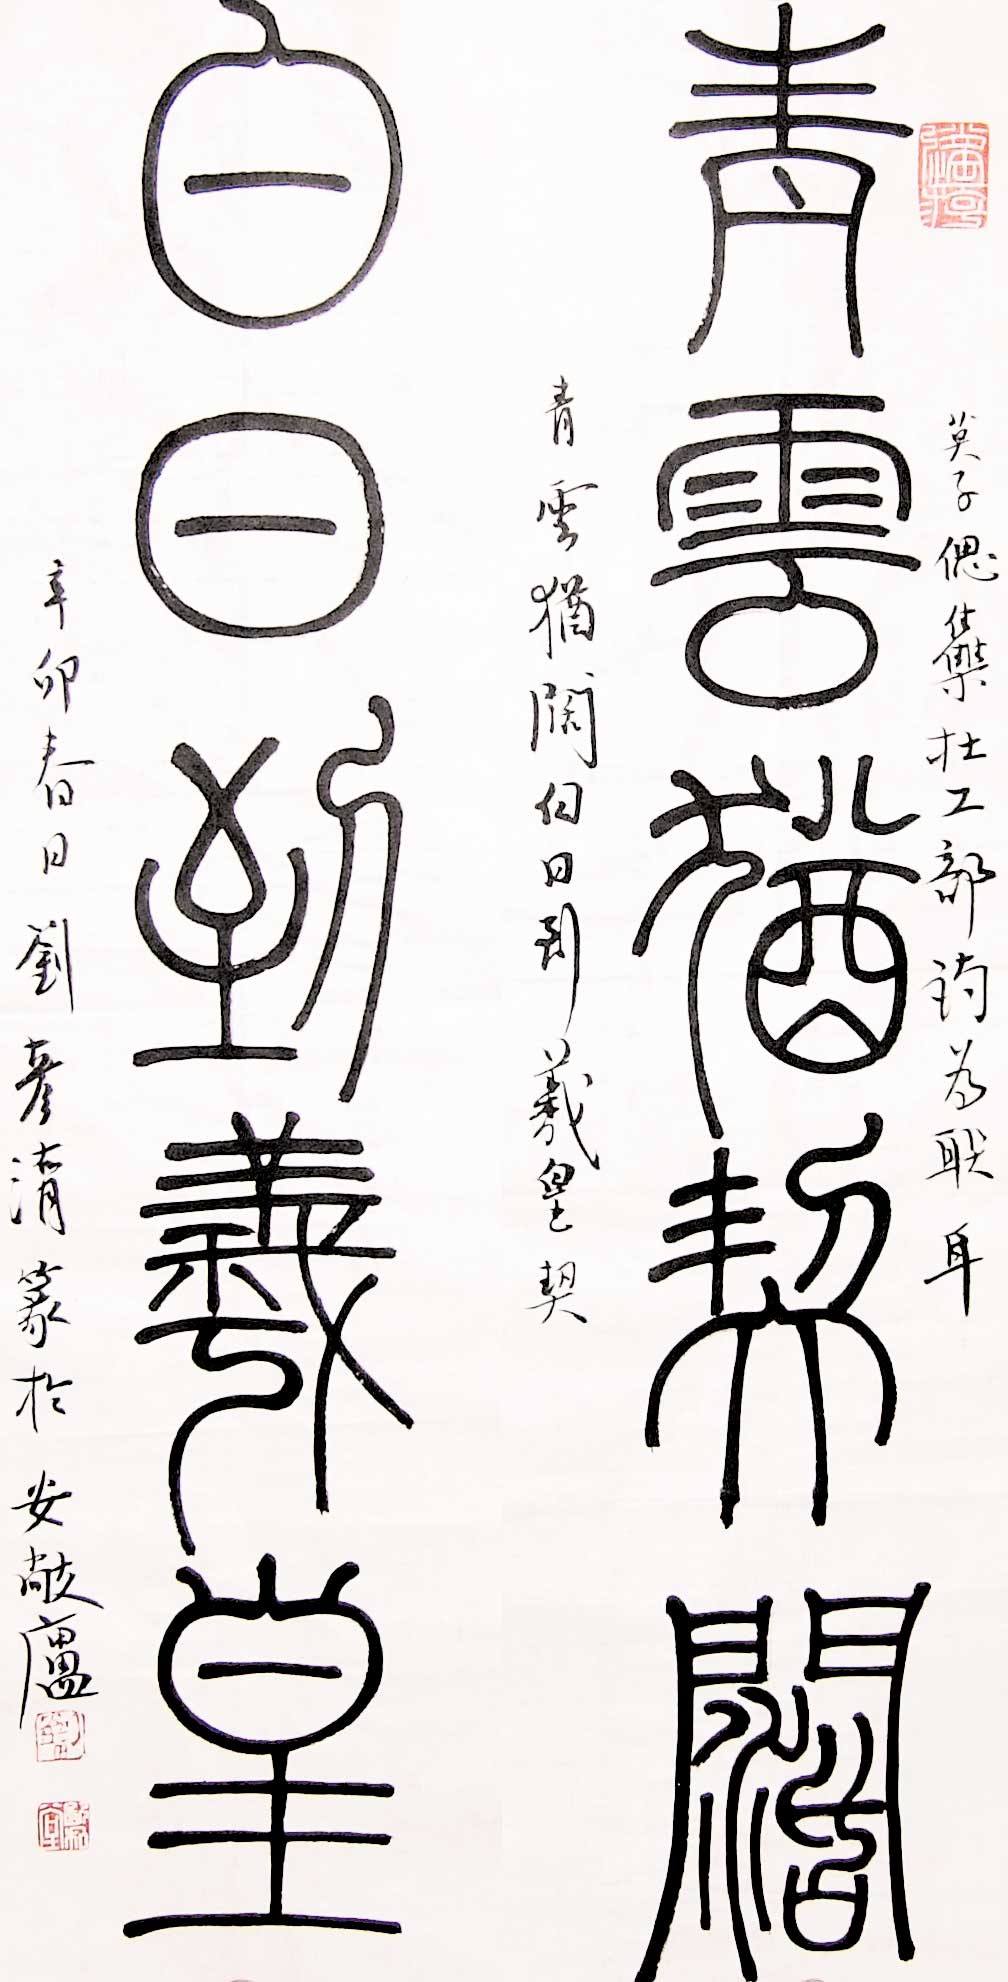 莫子偲集杜工部詩為联耳
青雲猶契闊
青雲猶闊白日到羲皇契
白日到羲皇
辛卯春日劉彥清篆於安敞廬